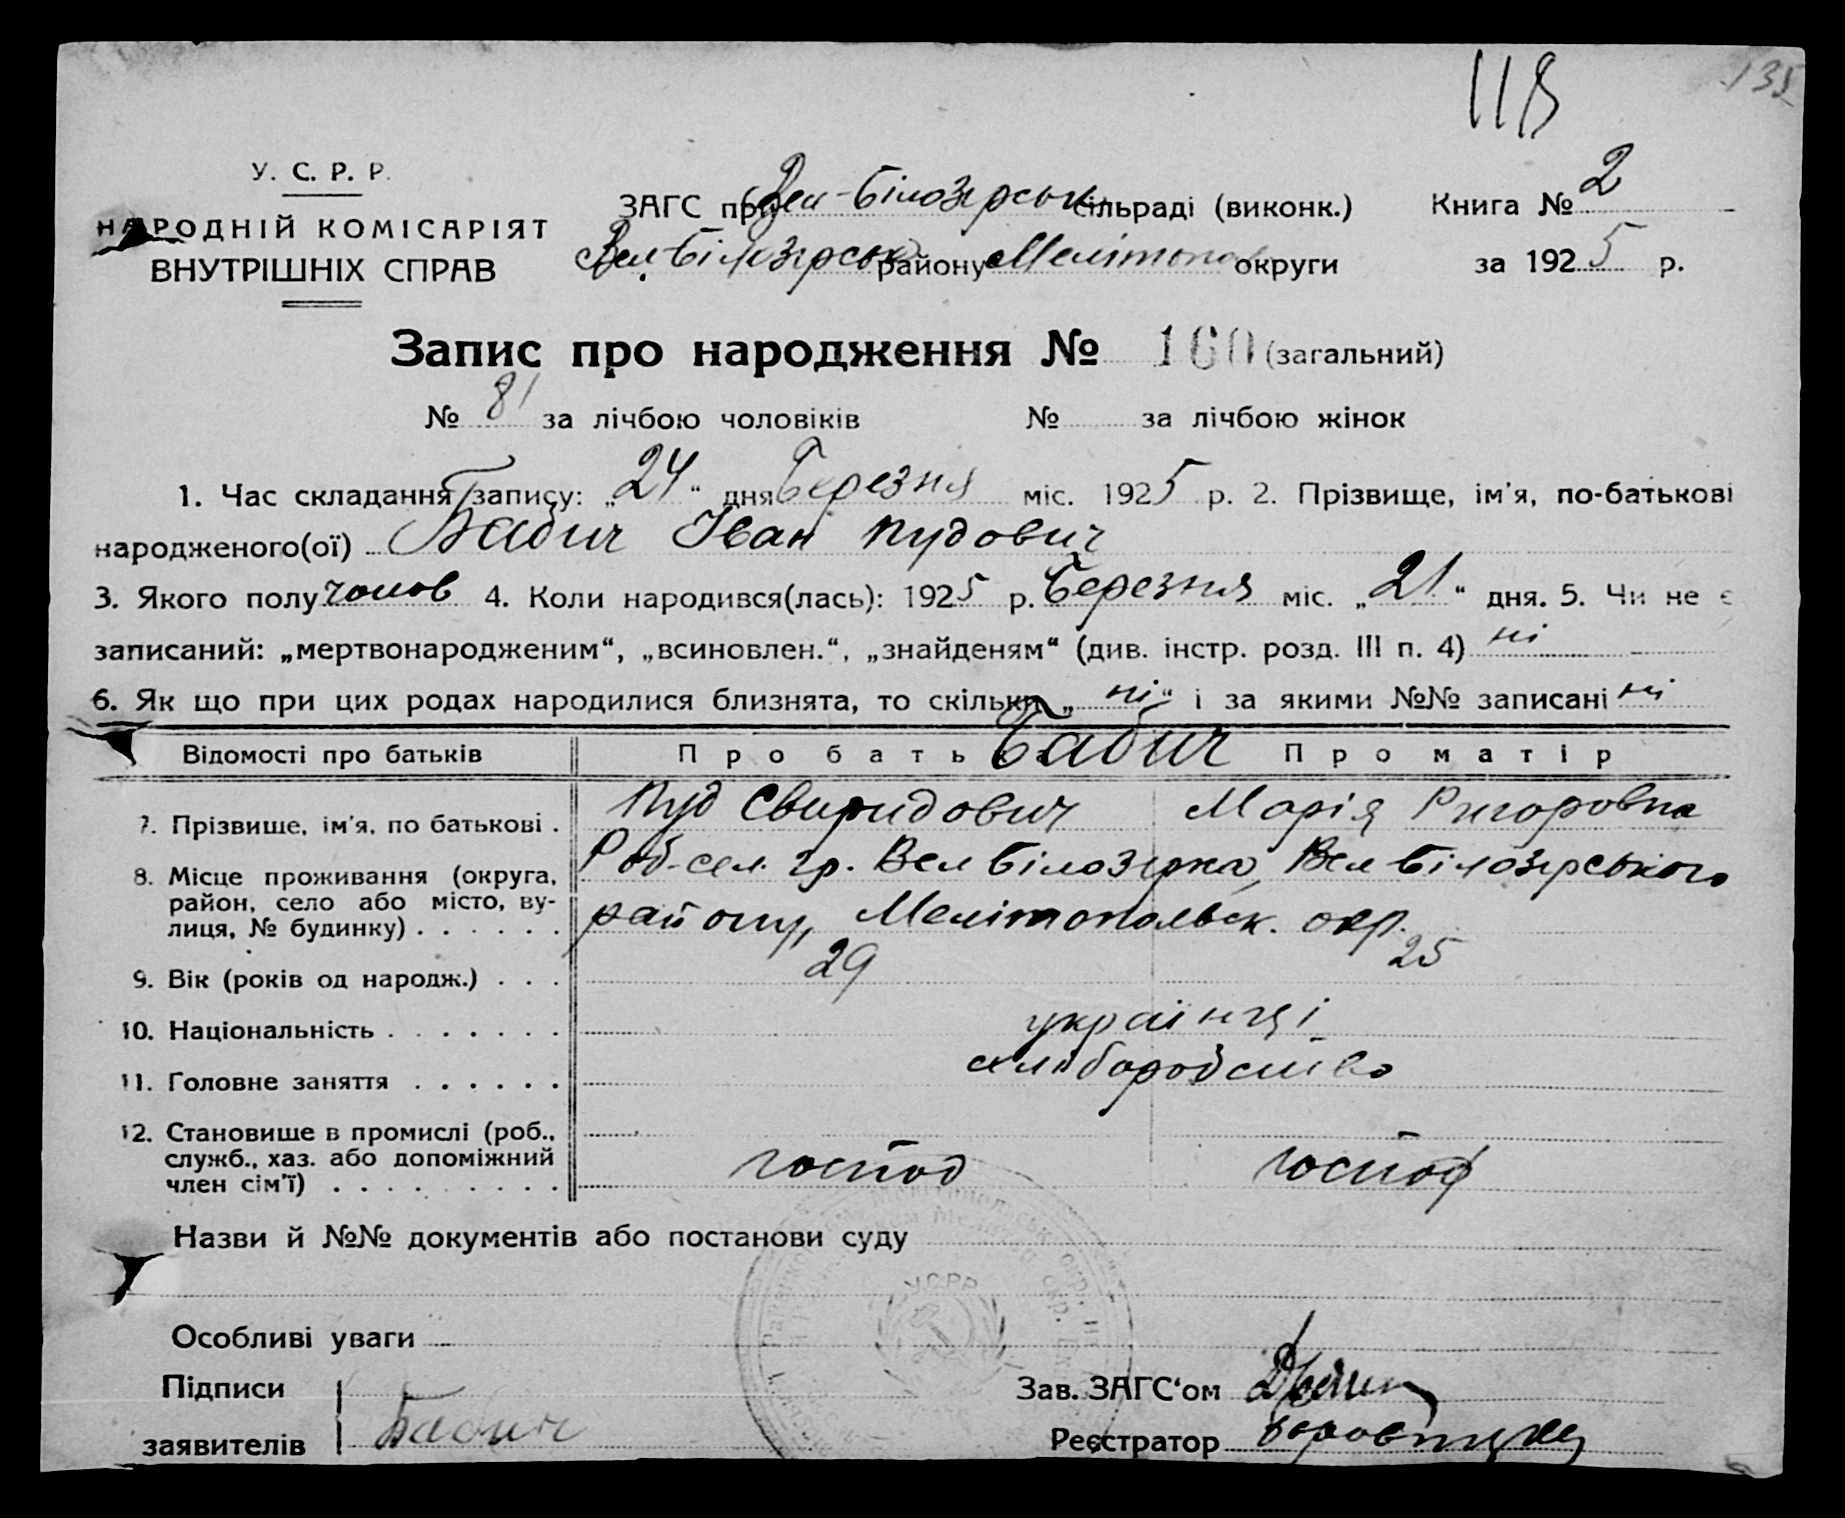 118 135
У. С. Р. Р.
НАРОДНІЙ КОМІСАРІЯТ
ВНУТРІШНІХ СПРАВ
ЗАГС при Вел-Білозірськ сільраді (виконк.) Книга № 2
Вел-Білозірськ району Мелітопол округи за 1925 р.
Запис про народження № 160 (загальний)
№ 81 за лічбою чоловіків № за лічбою жінок
1. Час складання запису: „24“ дня Березня міс. 1925 р. 2. Прізвище, ім'я, по-батькові
народженого(ої) Бабич Іван Пудович
3. Якого полу чолов 4. Коли народився(лась): 1925 р. Березня міс. „21“ дня. 5. Чи не є
записаний: „мертвонародженим“, „всиновлен.“, „знайденям“ (див. інстр. розд. III п. 4) ні
6. Як що при цих родах народилися близнята, то скільки „ні“ і за якими №№ записані ні
Відомості про батьків Про батька Бабич Про матір
7. Прізвище, ім'я, по батькові . Пуд Свиридович Марія Ригоровна
8. Місце проживання (округа, район, село або місто, вулиця, № будинку) . . . . . . Роб-сел. гр. Вел Білозірка, Вел Білозірського
району, Мелітопольск. окр.
9. Вік (років од народж.) . . . 29 25
10. Національність . . . . . . . українці
11. Головне заняття . . . . . . хліборобство
12. Становище в промислі (роб., служб., хаз. або допоміжний член сім'ї) . . . . . . . . . господ господ
Назви й №№ документів або постанови суду
УСРР
Особливі уваги
Підписи
заявителів Бабич
Зав. ЗАГС'ом
Реєстратор